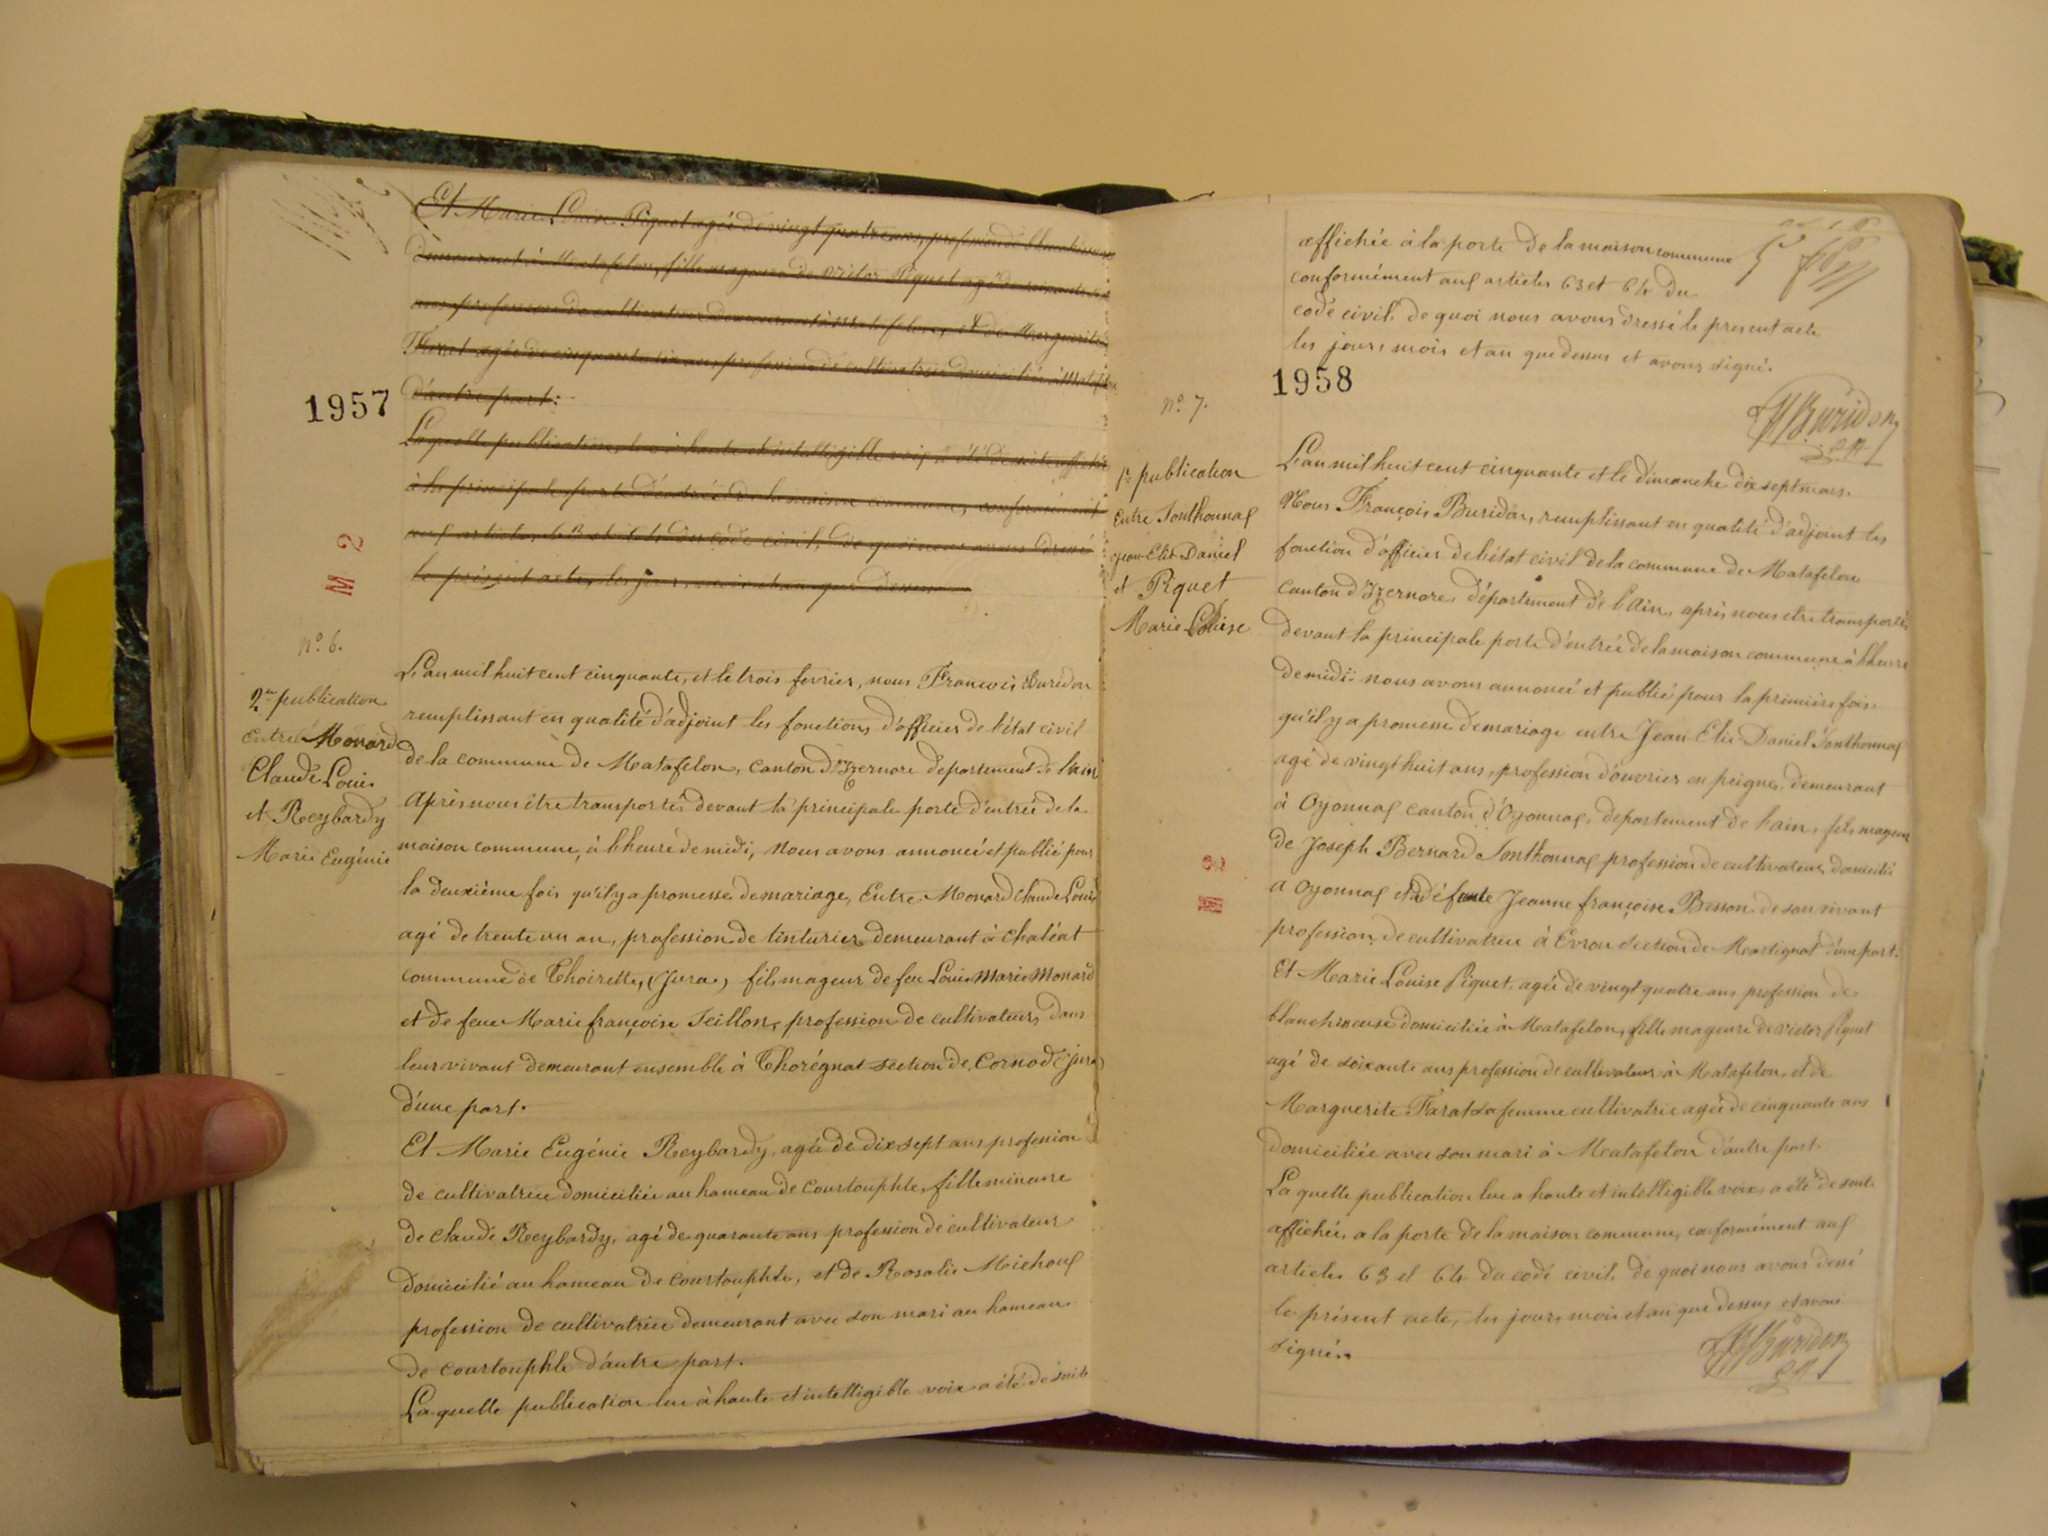 Et Marie Louise Piquet agée de vingt quatre ans, profession de blanchisseuse
demeurant à Matafelon, fille mageure de Victor Piquet agé de soixante
ans profession de cultivateur demeurant à Matafelon, et de Marguerite
Farat agée de cinquante six ans profession de cultivatrice domiciliée à Matafelon
d'autre part.
1957
Laquelle publication, lue à haute et intelligible voix a été de suite affichée
à la principale porte d'entrée de la maison commune, conformément
aux articles 63 et 64 du code civil, de quoi nous avons dressé
le présent acte, les jour, mois et an que dessus
M 2
No 6.
2me publication
entre Monard
Claude Louis
et Reybardy
Marie Eugénie
L'an mil huit cent cinquante, et le trois fevrier, nous François Buridon
remplissant en qualité d'adjoint les fonctions d'officier de l'état civil
de la commune de Matafelon, canton d'Izernore departement de l'ain
Après nous être transportés devant la principale porte d'entrée de la
maison commune, à l'heure de midi, Nous avons annoncé et publié pour
la deuxième fois qu'il y a promesse de mariage, Entre Monard Claude Louis
agé de trente un an, profession de tinturier demeurant à Chaléat
commune de Thoirette, (Jura) fils mageur de feu Louis Marie Monard
et de feue Marie françoise Teillon, profession de cultivateurs, dans
leur vivant demeurant ensemble à Thorégnat section de Cornod (Jura)
d'une part.
Et Marie Eugénie Reybardy, agée de dix sept ans profession
de cultivatrice domiciliée au hameau de Courtouphle, fille mineure
de Claude Reybardy, agé de quarante ans profession de cultivateur
domicilié au hameau de Courtouphle, et de Rosalie Michoux
profession de cultivatrice demeurant avec son mari au hameau
de Courtouphle d'autre part.
Laquelle publication lue à haute et intelligible voix a été de suite
affichée à la porte de la maison commune
conformément aux articles 63 et 64 du
code civil. de quoi nous avons dressé le present acte
les jours mois et an que dessus et avons signé.
1958
Buridon
No 7.
1re publication
Entre Jonthonnax
Jean Elie Daniel
et Piquet
Marie Louise
L'an mil huit cent cinquante et le dimanche dix sept mars.
Nous François Buridon, remplissant en qualité d'adjoint les
fonction d'officier de l'état civil de la commune de Matafelon
canton d'Izernore, département de l'Ain, après nous etre transportés
devant la principale porte d'entrée de la maison commune à l'heure
de midi: nous avons annoncé et publié pour la première fois
qu'il y a promesse de mariage entre Jean Elie Daniel Jonthonnax
agé de vingt huit ans, profession d'ouvrier en peignes, demeurant
à Oyonnax canton d'Oyonnax, departement de l'ain, fils mageur
de Joseph Bernard Jonthonnax profession de cultivateur, domicilié
a oyonnax et de feue Jeanne françoise Besson de son vivant
profession de cultivatrice à Evron section de Martignat d'une part.
Et Marie Louise Piquet, agée de vingt quatre ans profession de
blanchisseuse domiciliée à Matafelon, fille mageure de Victor Piquet
agé de soixante ans profession de cultivateur à Matafelon, et de
Marguerite Farat sa femme cultivatrice agée de cinquante ans
domiciliée avec son mari à Matafelon d'autre part.
Laquelle publication lue a haute et intelligible voix, a été de suite
affichée, a la porte de la maison commune, conformément aux
articles 63 et 64 du code civil, de quoi nous avons dressé
le présent acte, les jours, mois et an que dessus et avons
signé.
M 3
Buridon